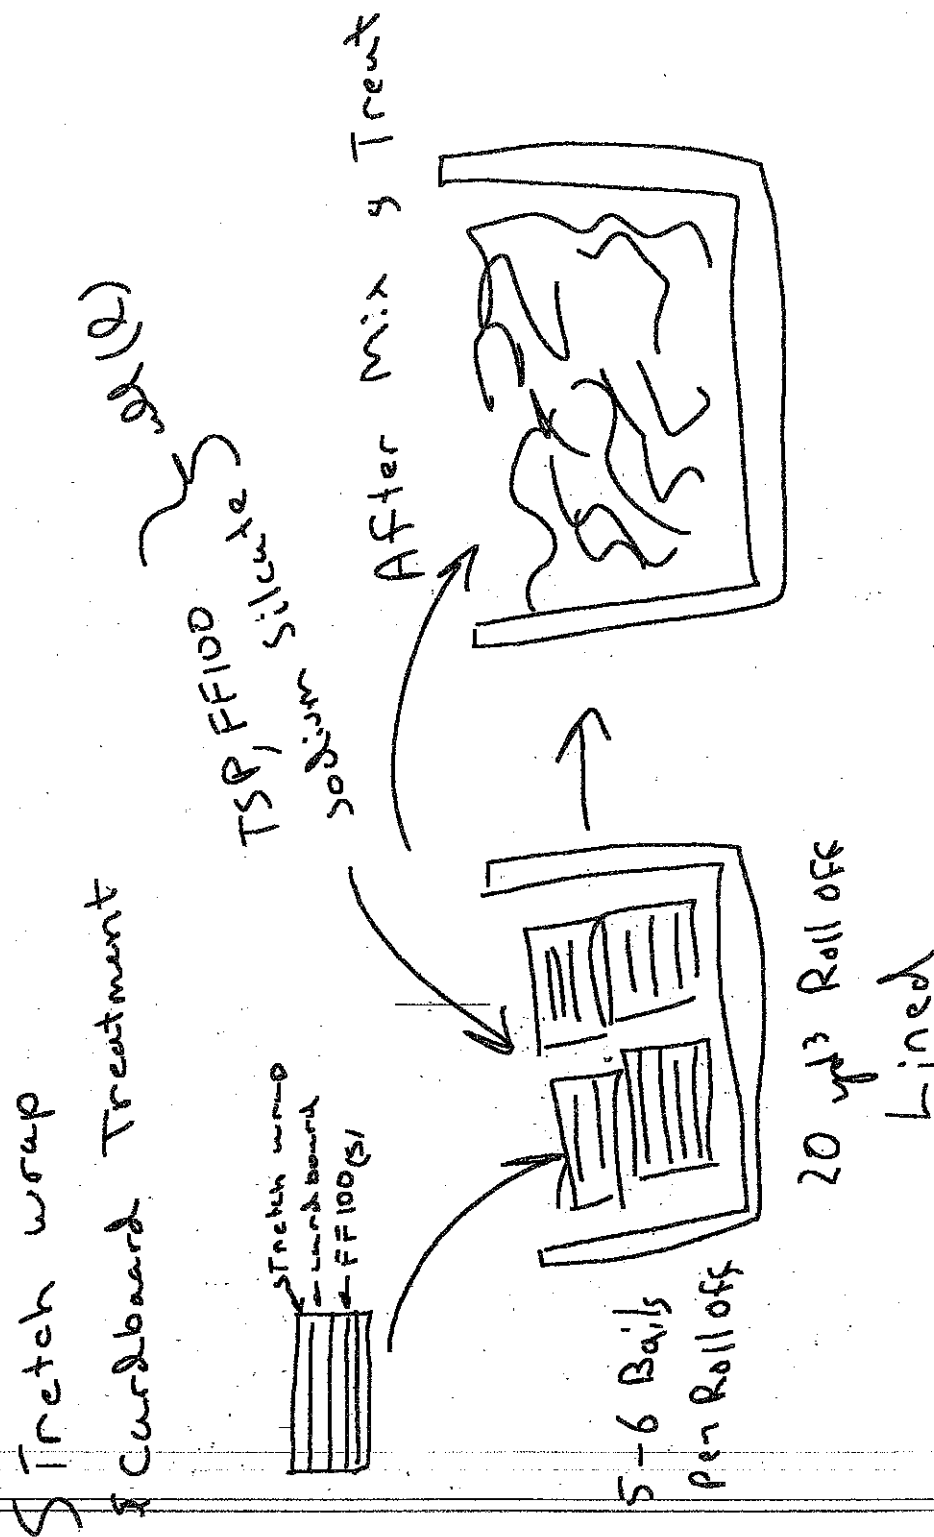 Stretch wrap
& Cardboard Treatment
stretch wrap
cardboard
FF100(s)
TSP, FF100
sodium silcate
(2)
After Mix & Treat
5-6 Bails
Per Roll off
20 yd3 Roll off
Lined